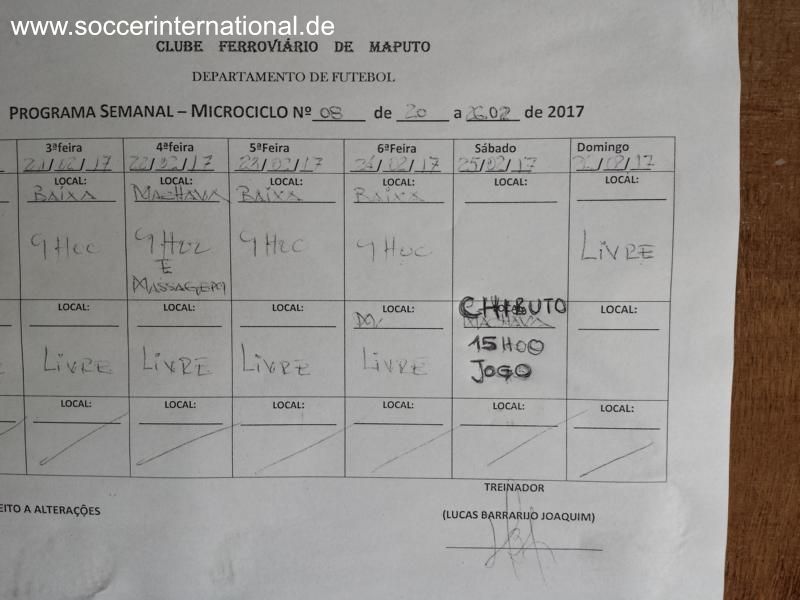 www.soccerinternational.de
CLUBE FERROVIÁRIO DE MAPUTO
DEPARTAMENTO DE FUTEBOL
PROGRAMA SEMANAL – MICROCICLO Nº 08 de 20 a 26.02 de 2017
3ªfeira 4ªfeira 5ªFeira 6ªFeira Sábado Domingo
21/02/17 22/02/17 23/02/17 24/02/17 25/02/17 26/02/17
LOCAL: LOCAL: LOCAL: LOCAL: LOCAL: LOCAL:
BAIXA MACHAVA BAIXA BAIXA
9H00 9H00 9H00 9H00 LIVRE
E
LOCAL: LOCAL: LOCAL: LOCAL: CHIBUTO LOCAL:
MACHAVA
15H00
LIVRE LIVRE LIVRE LIVRE JOGO
LOCAL: LOCAL: LOCAL: LOCAL: LOCAL: LOCAL:
TREINADOR
EITO A ALTERAÇÕES (LUCAS BARRARIJO JOAQUIM)